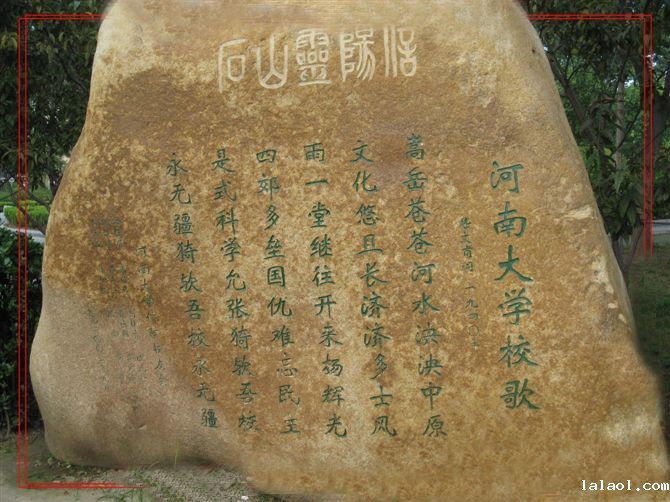 信陽靈山石
河南大学校歌
嵩岳苍苍河水泱泱中原
文化悠且长济济多士风
雨一堂继往开来扬辉光
四郊多垒国仇难忘民主
是式科学允张猗欤吾校
永无疆猗欤吾校永无疆
lalaol.com